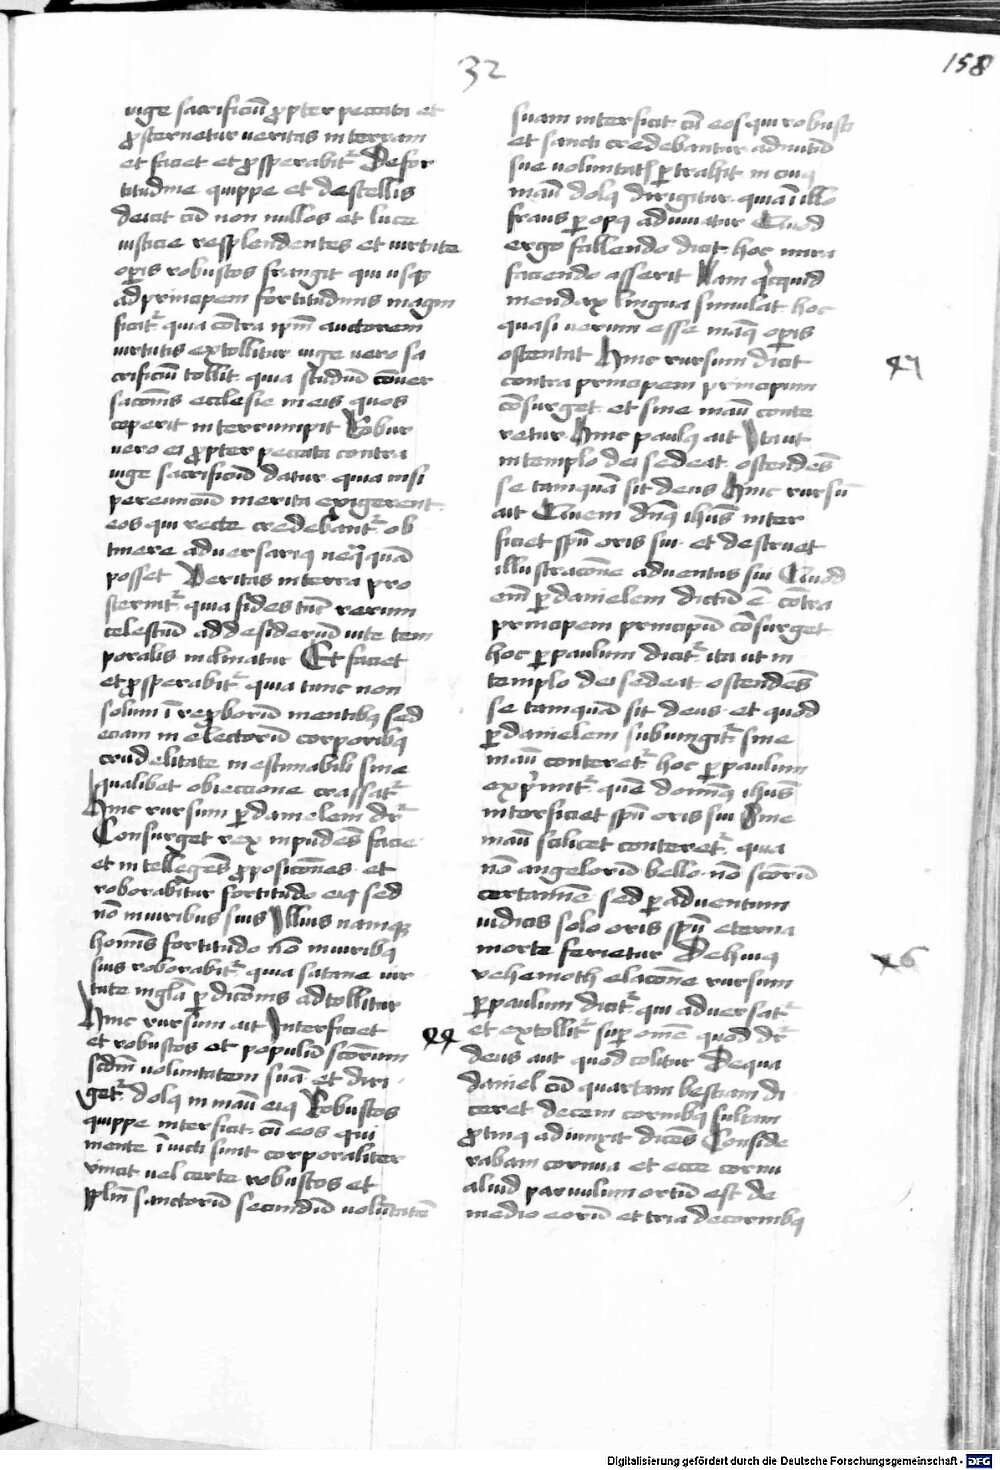 32
158
iuge sacrificiū propter peccata et
prosternetur veritas in terram
et faciet et prosperabitᷣ De for
titudine quippe et de stellis
deicit cū non nullos et luce
iusticie resplendentes et virtute
oꝑis robustos frangit qui usqꝫ
ad principem fortitudinis magni
ficatᷣ quia cōtra ipm̄ auctorem
virtutis extollitur iuge vero sa
crificiū tollit quia studiū cōuer
sacōnis ecclesie in eis quos
ceperit interrumpit Robur
vero ei propter peccata contra
iuge sacrificiū datur quia nisi
pereunciū merita exigerent
eos qui recte credebantᷣ ob
tinere adversariꝰ neqꝫquā
posset Veritas in terra pro
sternitᷣ quia fides tūc rerum
celestiū ad desideriū vite tem
poralis inclinatur Et faciet
et prosperabitᷣ quia tunc non
solum ī reproborū mentibꝫ sed
eciam in electorū corporibꝫ
crudelitate inestimabili sine
qualibet obieccione crassatᷣ
Hinc rursum ꝑ danielem drᷣ
Consurget rex inpudēs facie
et intellegēs proposicōnes et
roborabitur fortitudo eiꝰ sed
nō in viribus suis Illius namqꝫ
homīs fortitudo nō in viribꝫ
suis roborabitᷣ quia satane vir
tute in gl̄a ꝑdicōnis adtollitur
Hinc rursum ait Interficiet
et robustos et populū sc̄orum
scd̄m voluntatem suā et diri
getᷣ dolꝰ in manū eiꝰ Robustos
quippe interficit cū eos qui
mente īuicti sunt corporaliter
vincit vel certe robustos et
ppl̄m sanctorū secundū volūtatē
44
suam interficit cū eos qui robusti
et sancti credebantur ad nutū
sue voluntatꝭ ꝑtrahit in cuiꝰ
manū dolꝰ dirigitur quia ī illo
fraus ꝑ opꝰ adiuvatur Quod
ergo fallendo dicit hoc mira
faciendo asserit Nam quicquid
mendax lingua simulat hoc
quasi verum esse manꝰ oꝑis
ostentat Hinc rursum dicit
contra principem principum
cōsurget et sine manū conte
retur Hinc paulꝰ ait Ita ut
in templo dei sedeat ostendēs
se tamquā sit deus Hinc rursū
ait Quem dn̄s ihūs inter
ficiet spū oris sui et destruet
illustracōne adventus sui Quod
em̄ ꝑ danielem dictū ē cōtra
principem principū cōsurget
hoc ꝑ paulum dicitᷣ ita ut in
templo dei sedeat ostendēs
se tamquā sit deus et quod
ꝑ danielem subiungitᷣ sine
manū conteretᷣ hoc ꝑ paulum
exprimitᷣ quē dominꝰ ihūs
interficiet spū oris sui Sine
manū scilicet conteretᷣ quia
nō angelorū bello nō sc̄orū
certamīe sed ꝑ adventum
iudicis solo oris spū eterna
morte ferietur De huiꝰ
vehemoth elacōne rursum
ꝑ paulum dicitᷣ qui adversatᷣ
et extollitᷣ suꝑ omē quod drᷣ
deus aut quod colitur De qua
daniel cū quartam bestiam di
ceret decem cornibꝫ fultam
protinꝰ adiunxit dicēs Conside
rabam cornua et ecce cornu
aliud parvulum ortū est de
medio eorū et tria de cornibꝫ
47
46
Digitalisierung gefördert durch die Deutsche Forschungsgemeinschaft - DFG